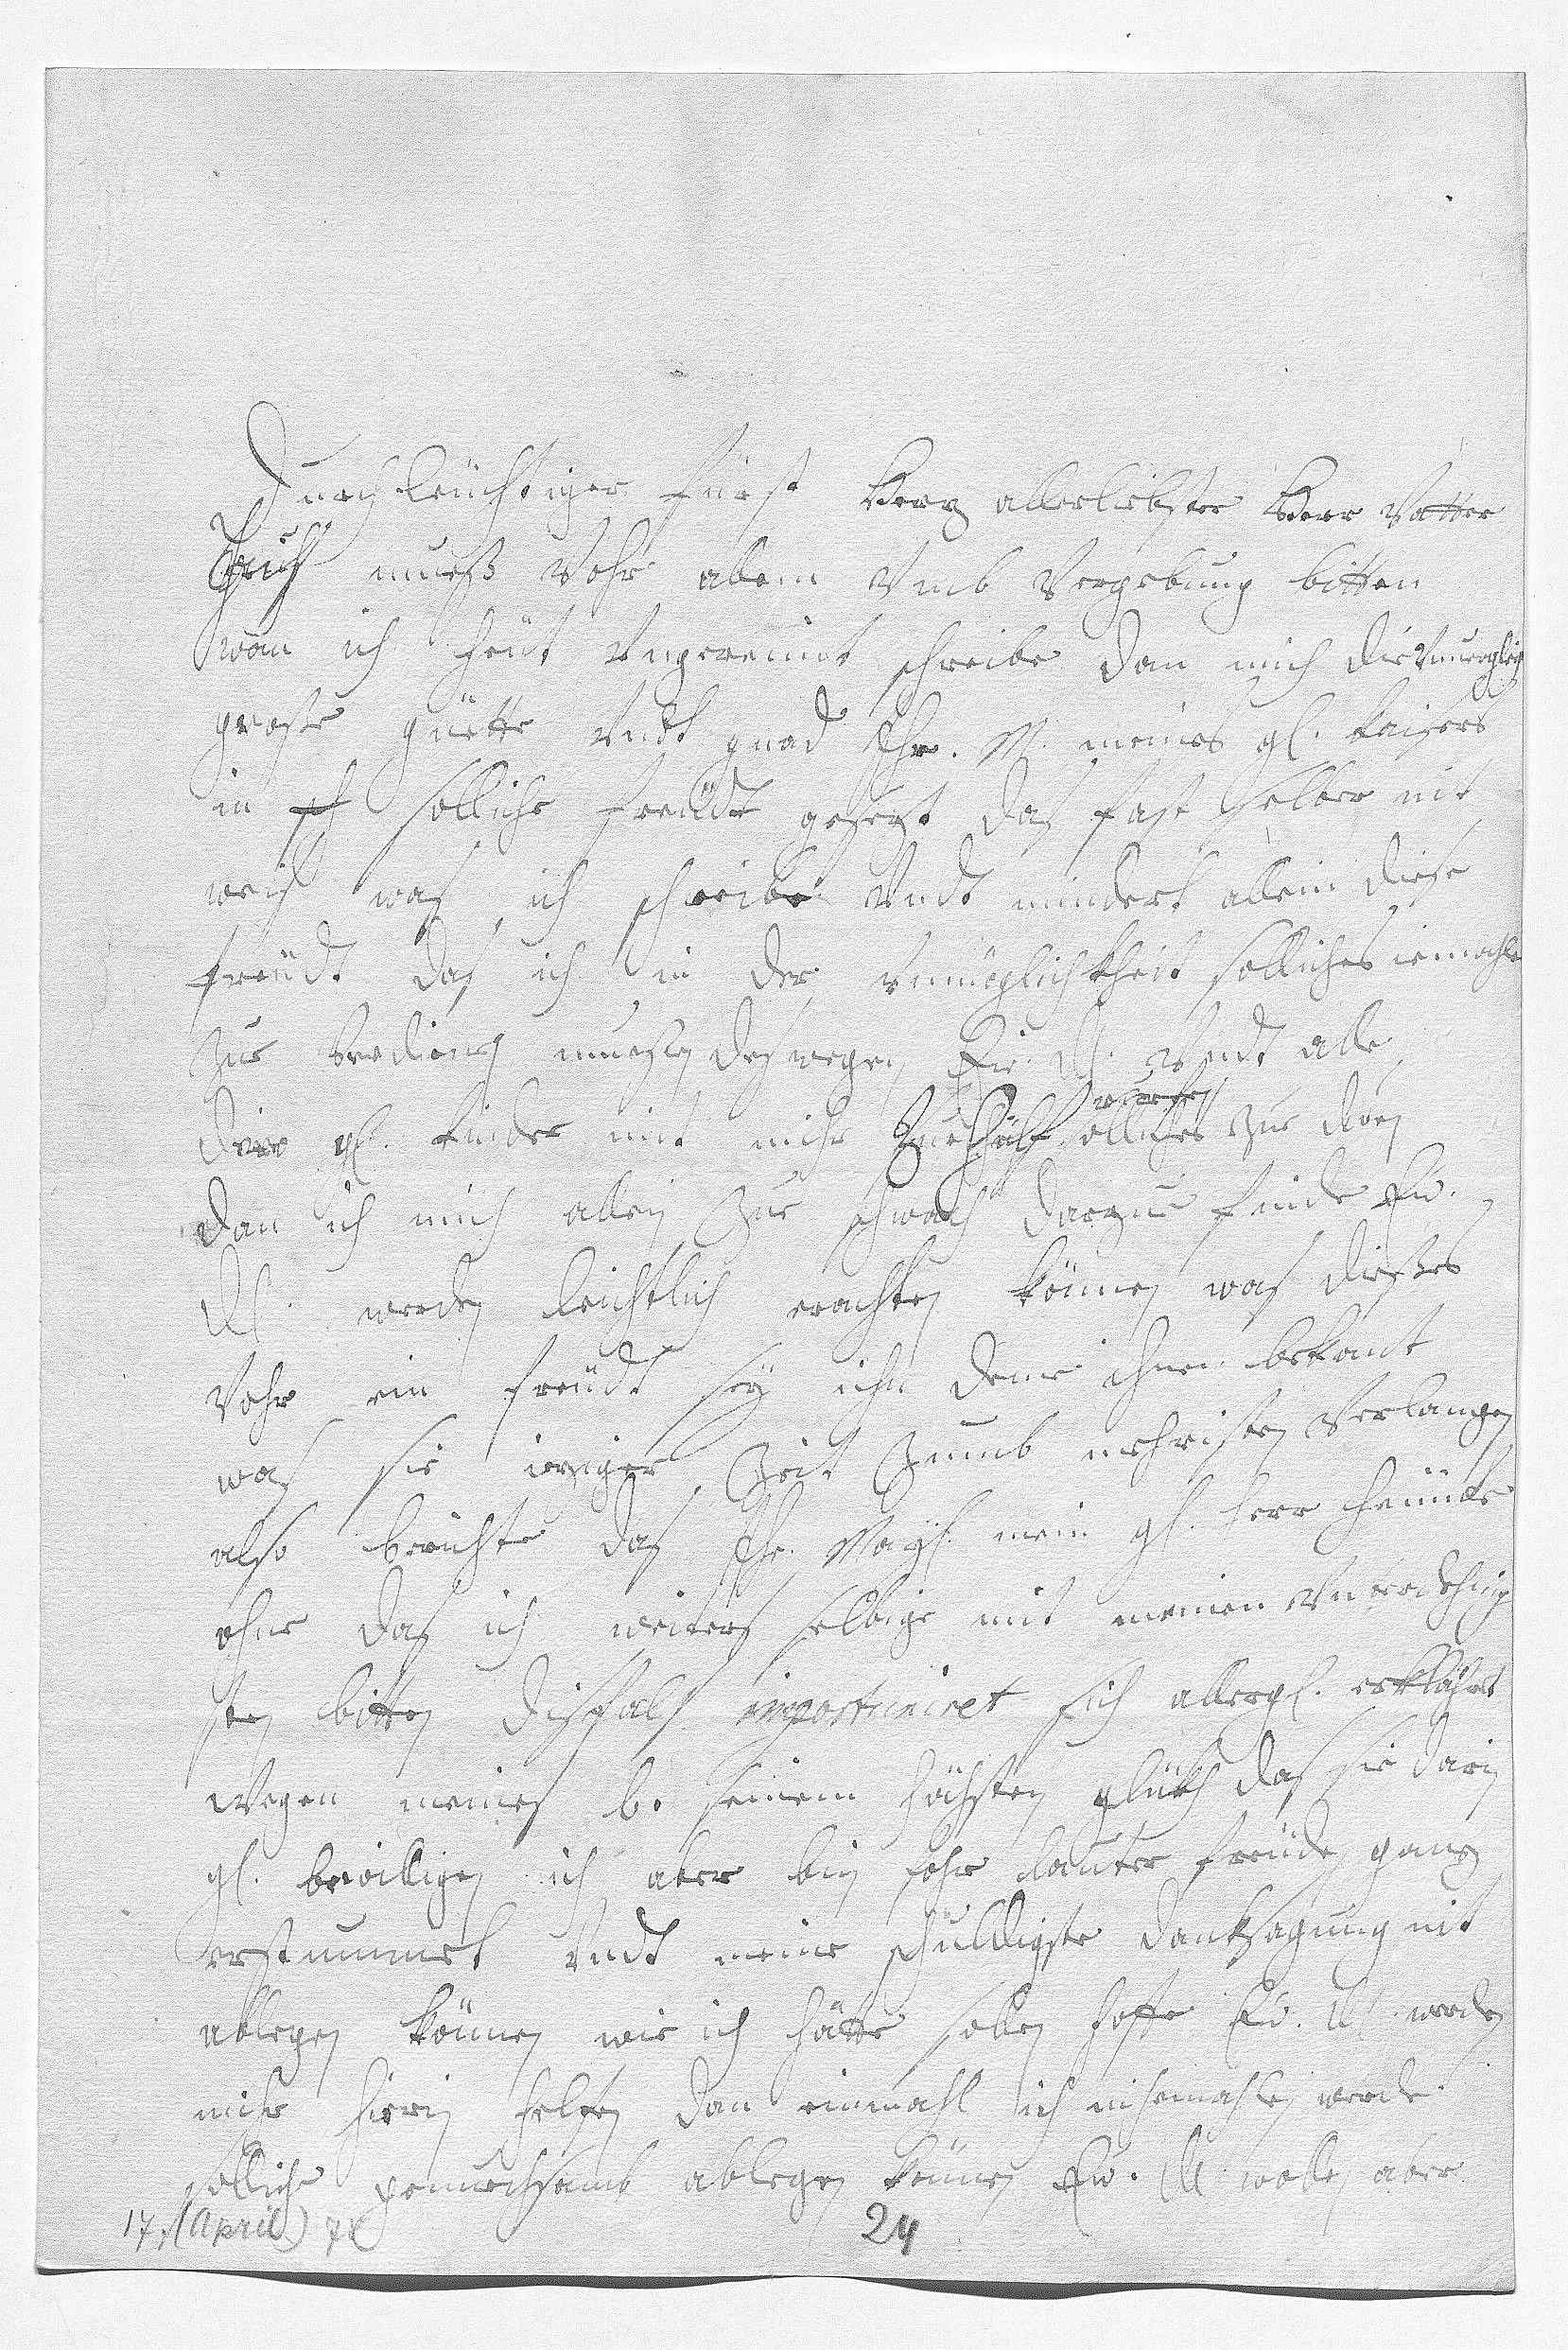 Durchleüchtiger Fürst Herz allerliebster Herr Vatter
Ich mueß Vohr allem Vmb Vergebung bitten
wan ich heüt Vngereimt schreibe dan mich die
große güette Vndt gnad Ihr. M. meines gl. kaisers
in solliche freüdt gesezt das fast selber nit
weiß was ich schreibe Vndt mindert allein diese
freüdt das ich in der Vnmöglichkheit solliches iemahls
zue bedienen muessen deswegen Ew. Dl. Vndt alle
dero gl. kinder mit mihr zue hülf solliches zue
dan ich mich allein zue schwach darzue finde Ew.
Dl. werden leichtlich erachten können was dießes
Vohr ein freüdt seÿ ihn deme ihnen bekant
was sie ieziger Zeit Zumb meheristen Verlangen
also berichte das Ihr. Maÿl. mein gl. herr heündt
ohne das ich weiters selbige mit meinen
sten bitten dißfals importuniret sich allergl. erklährt
wegen meines b. seinem höchsten glückh das sie darin
gl. bewilligen ich aber bin Vohr lauter freüden ganz
erstummet Vndt meine schuldigste danksagung nit
ablegen können wie ich hätte sollen hoffe Ew. Dl. werden
mihr hierin helfen dan einmahl ich niehemahlen werde
solliche genuechsamb ablegen können Ew. Dl. wollen aber
17. (April) 24